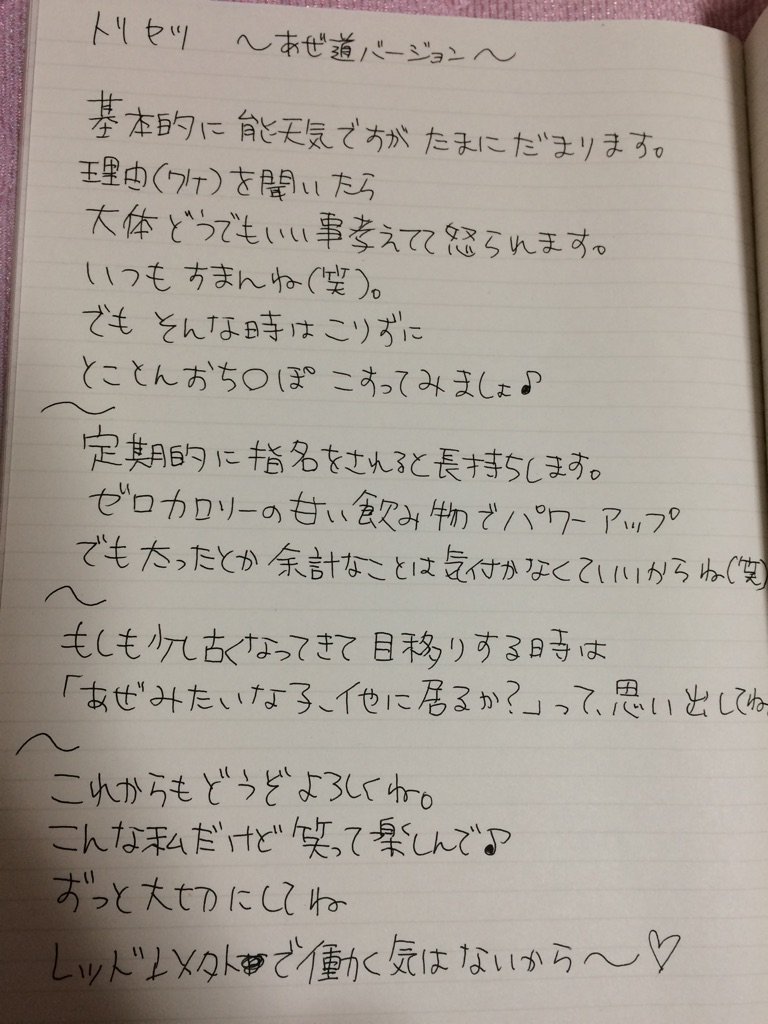 トリセツ 〜あぜ道バージョン〜
基本的に能天気ですが たまにだまります。
理由(ワケ)を聞いたら
大体どうでもいい事考えてて怒られます。
いつもすまんね(笑)。
でも そんな時はこりずに
とことんおち○ぽ こすってみましょ♪
〜
定期的に指名をされると長持ちします。
ゼロカロリーの甘い飲み物でパワーアップ
でも太ったとか余計なことは気付かなくていいからね(笑)
〜
もしも少し古くなってきて目移りする時は
「あぜみたいな子、他に居るか?」って、思い出してね。
〜
これからもどうぞよろしくね。
こんな私だけど笑って楽しんで♪
ずっと大切にしてね
レッドで働く気はないから〜♡